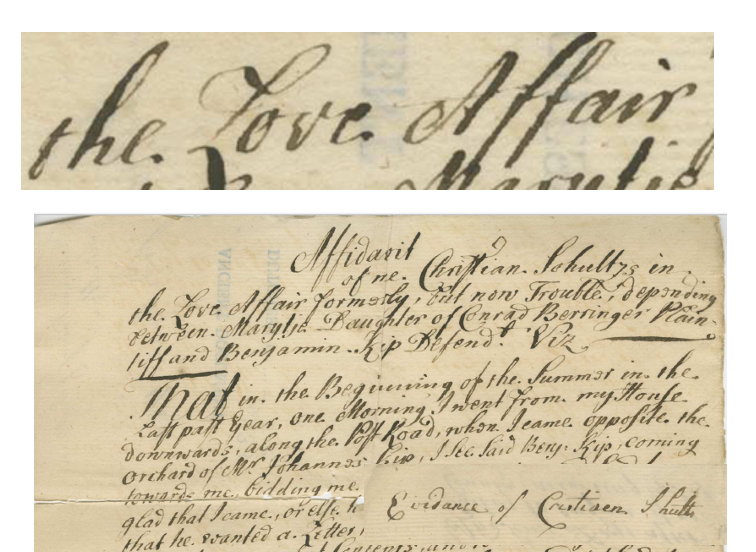 the Love Affair
Marytie
Affidavit
of me Christian Schultzs in
the Love Affair formerly, but now Trouble, depending
between Marytie Daughter of Conrad Berringer Plain-
tiff and Benjamin Kip Defendt. Viz
That in the Beginning of the Summer in the
Last past year, one Morning I went from my House
downwards, along the Post Road, when I came opposite the
orchard of Mr. Johannes Kip, I See Said Benj. Kip, coming
towards me, bidding me
glad that I came, or else h
that he wanted a Letter,
Evidance of Cristiaen Shults